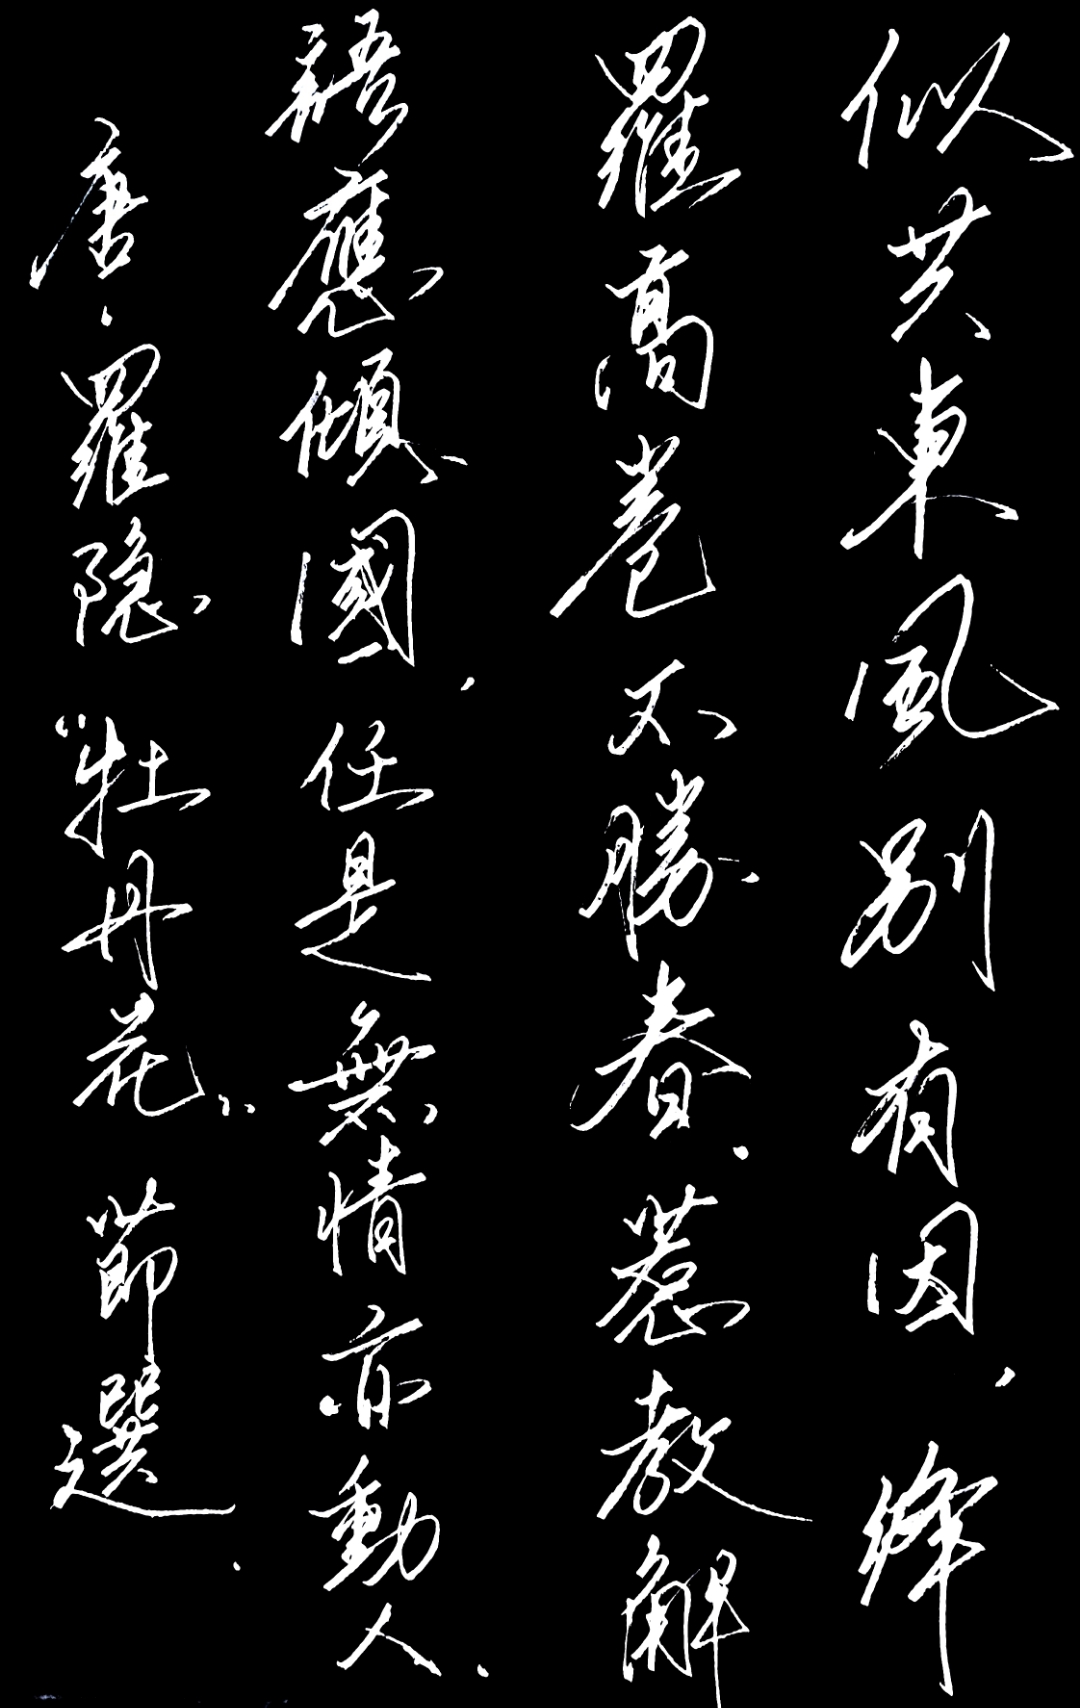 似共東風别有因，绛
羅高卷不勝春．惹教解
語應傾國，任是無情亦動人．
唐．羅隐“牡丹花”節選．